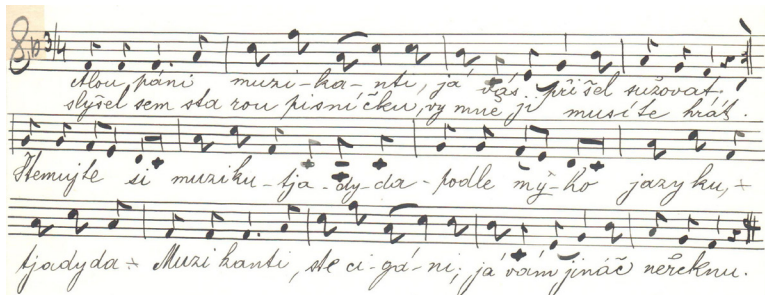 3/4
Alou, páni muzi-ka-nti, já vás přišel sužovat.
slyšel sem sta rou pisničku, vy mně ji musíte hrát.
Štemujte si muziku-tja-dy-da-podle mý-ho jazyku, ÷
tjadyda ÷ Muzikanti, ste ci-gá-ni, já vám jináč neřeknu.